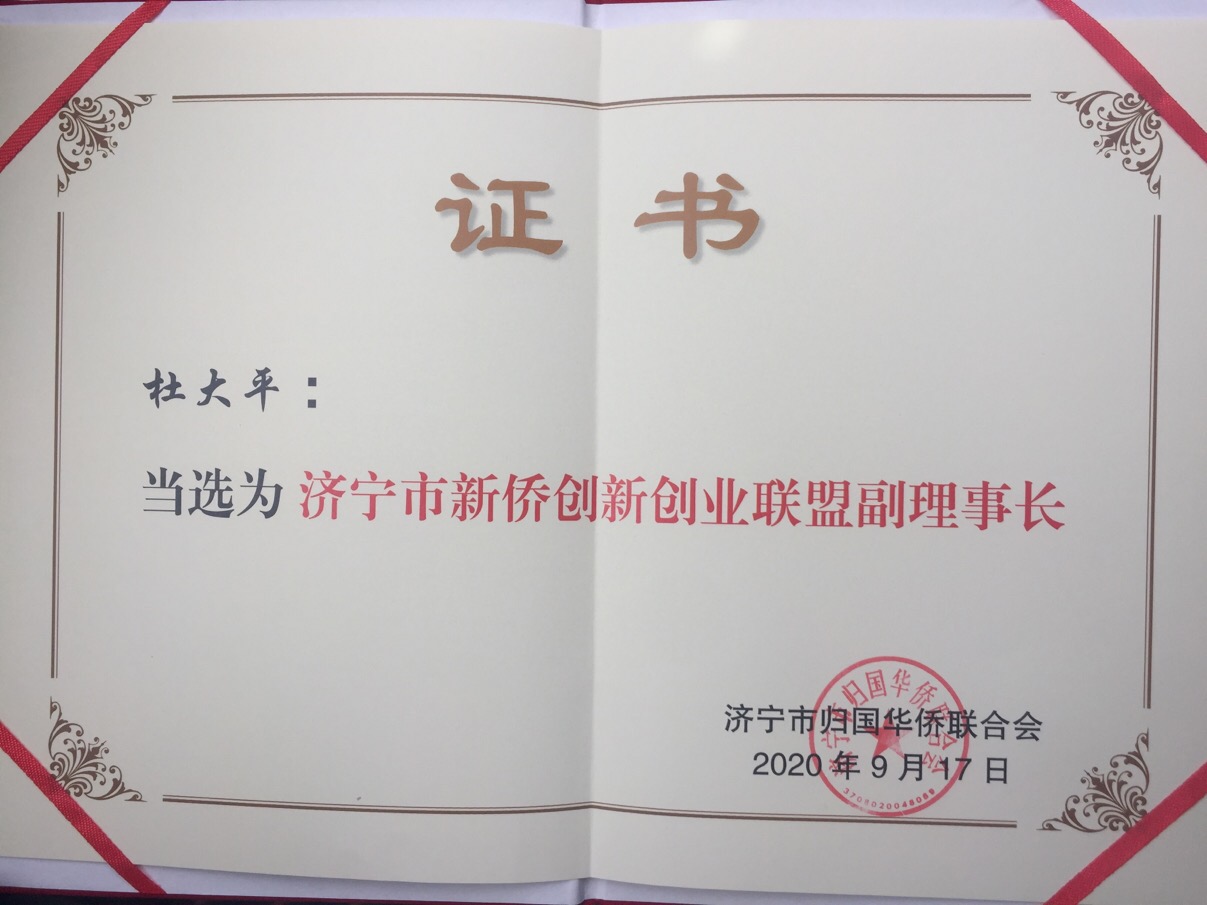 证书
杜大平：
当选为 济宁市新侨创新创业联盟副理事长
济宁市归国华侨联合会
2020 年 9 月 17 日
济宁市归国华侨联合会